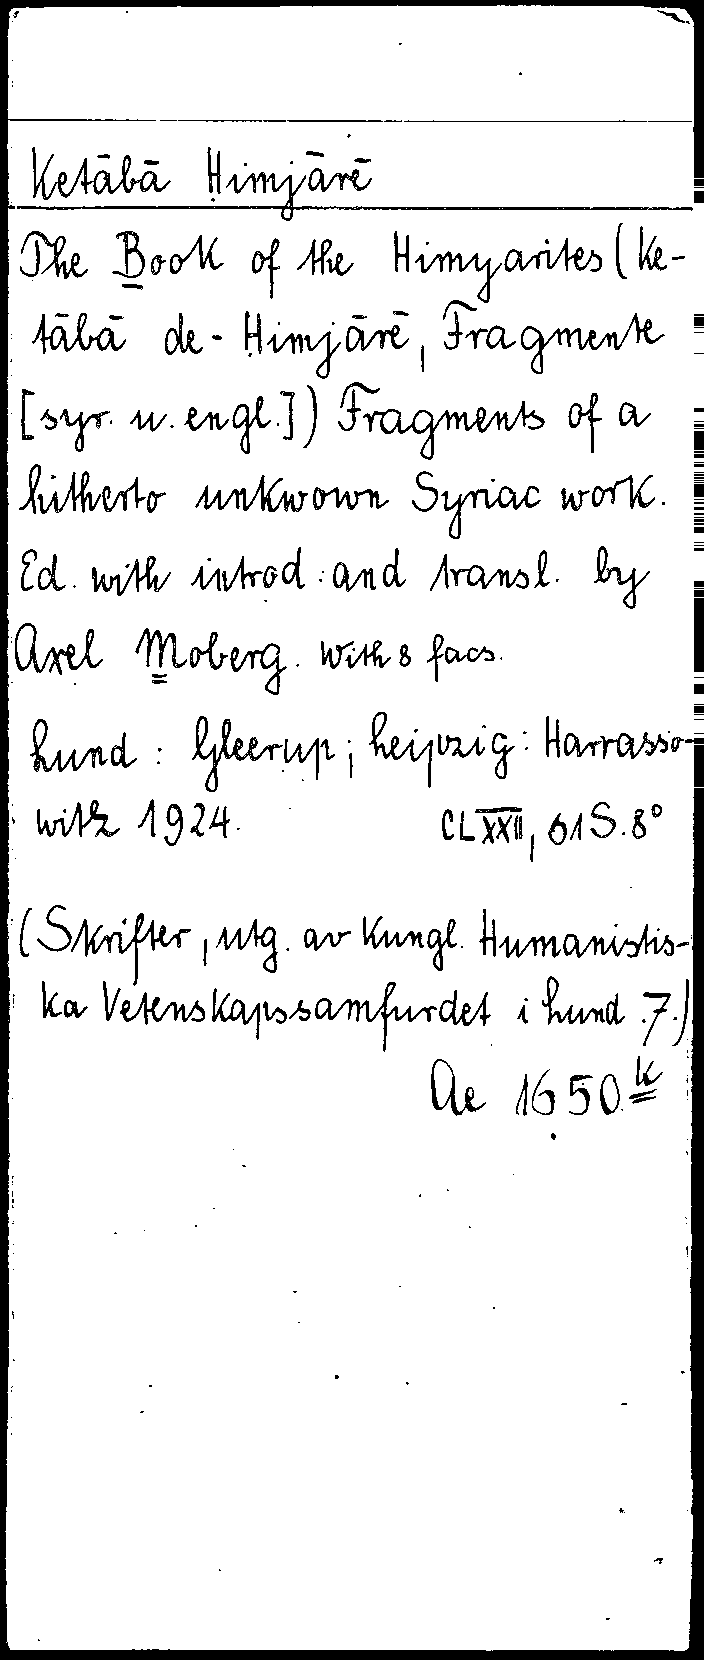 Ketābā Ḥimjārē
The Book of the Himyarites (Ke-
tābā de-Ḥimjārē, Fragmente
[syr. u. engl.]) Fragments of a
hitherto unkwown Syriac work.
Ed. with introd. and transl. by
Axel Moberg. With 8 facs.
Lund : Gleerup; Leipzig: Harrasso-
witz 1924. CLXXII, 61 S. 8°
(Skrifter, utg. av Kungl. Humanistis-
ka Vetenskapssamfurdet i Lund .7.)
Ae 1650 k